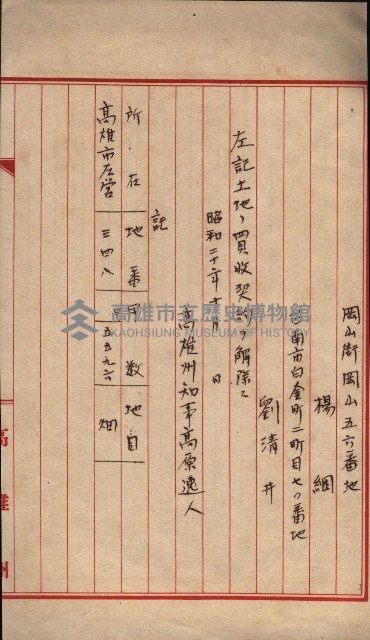 岡山街岡山五六番地
楊 綢
台南市白金町二町目七ノ番地
劉清井
左記土地ノ買收契約ヲ解除ス
昭和二十年十月 日
高雄州知事高原逸人
記
所在 地番 甲數 地目
高雄市左営 三四八 五五九六 畑
高雄州
高雄市立歷史博物館
KAOHSIUNG MUSEUM OF HISTORY